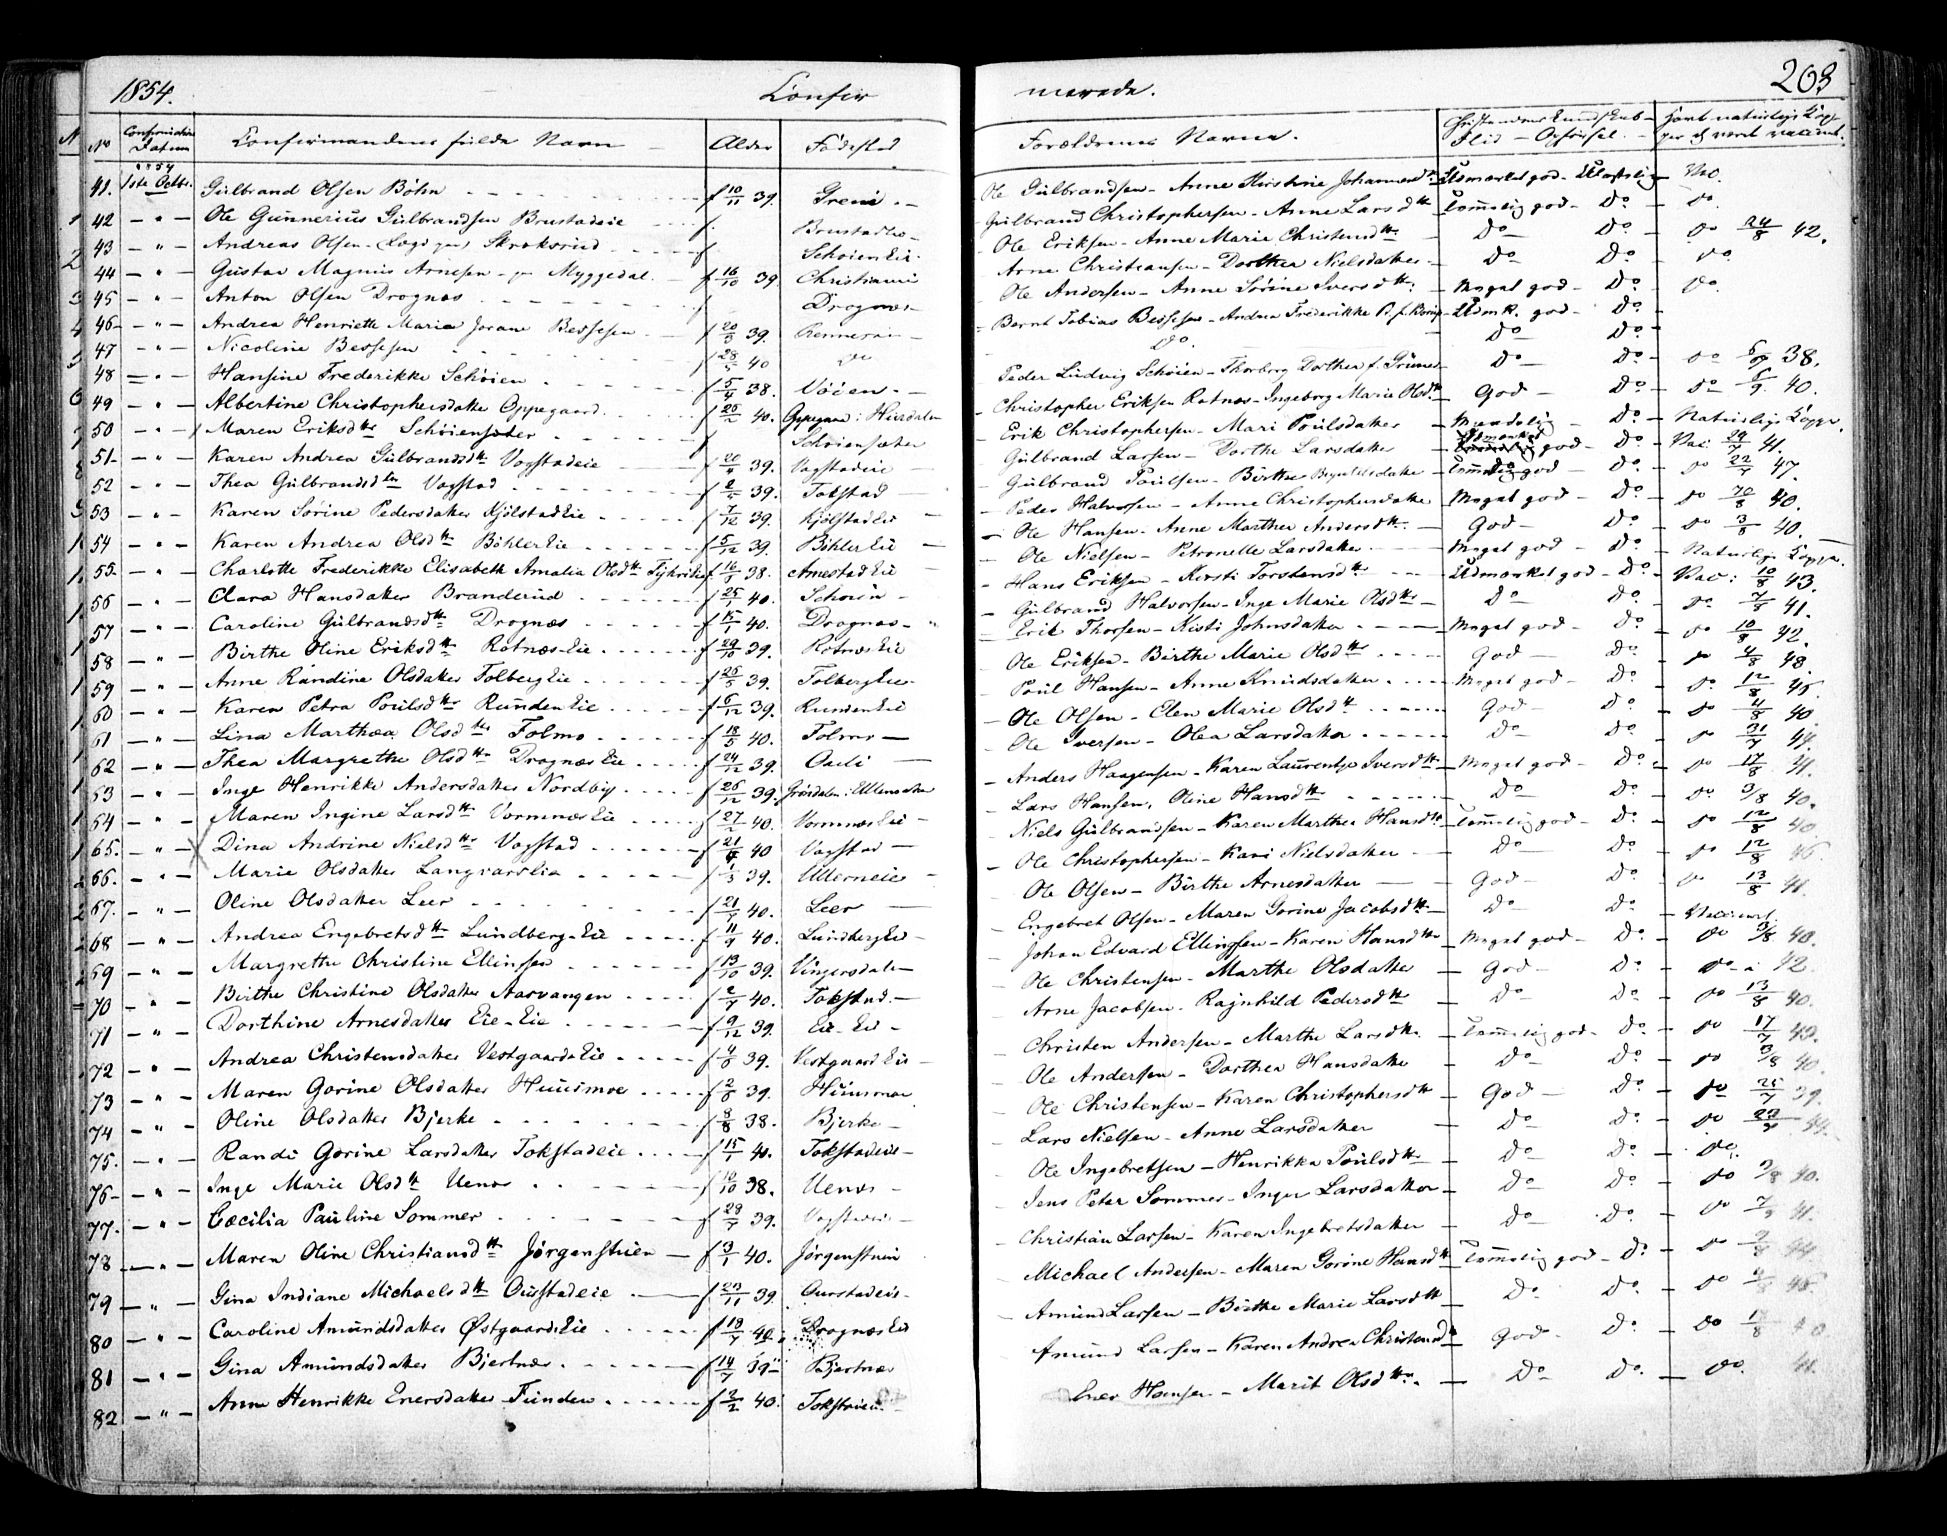 1854. Confir merede. 203
No Confirmations Datum Confirmandens fulde Navn Alder Fødested Forældrenes Navne. Christendoms Kundskab Flid - Opførsel. havt naturlige Kopper el. vært vaccinert.
1854
41. 1ste Octbr. Gulbrand Olsen Böhn f 10/11 39. Greni Ole Gulbrandsen - Anne Kirstine Johannesdtr Udmærket god - Ulastelig
42 - " - Ole Gunnerius Gulbrandsen Brustadeie f. Gulbrand Christophersen - Anne Larsdtr Tam̄elig god - Do do
43 - " - Andreas Olsen Ole Eriksen - Anne Marie Christensdtr Do Do do 24/8 42.
44 - " - Gustav Magnus Arnesen Myggedal f 16/10 39 Christiania Arne Christiansen - Dorthea Nielsdatter Do Do do
45 - " - Anton Olsen Drognæs f Drognæs Ole Andersen - Anne Sörine Iversdtr Meget god - Do do
46 - " - Andrea Henriette Maria Bessesen f 20/3 39. Bernt Tobias Bessesen - Andrea Frederikke Udmk. god - Do
47 - " - Nicoline Bessesen f 28/5 40 do Do. Do Do
48 - " - Hansine Frederikke Schöien f 5/4 38. Vöien Peder Ludvig Schöien - Thorborg Dorthea Do Do do 38.
49 - " - Albertine Christophersdatter Oppegaard f 20/2 40. Christopher Eriksen Rotnæs - Ingeborg Marie Olsdtr God Do do 40.
50 - " - Maren Eriksdtr Schöiensæter f Schöiensæter Erik Christophersen - Mari Poulsdatter Do Naturlige Kopper.
51 - " - Karen Andrea Gulbrandsdtr Vogstadeie f 20/4 39. Vogstadeie Gulbrand Larsen - Dorthe Larsdatter Udmærket god - Do Vac. 29/7 41.
52 - " - Thea Gulbrandsdtr Vogstad f 2/5 39. Tokstad Gulbrand Poulsen - Birthe god - Do do 22/7 47.
53 - " - Karen Sörine Pedersdatter Kjölstad Eie f 7/12 39. Kjölstad Eie Peder Halvorsen - Anne Christophersdatter Meget god - Do do 40.
54 - " - Karen Andrea Olsdtr Böhler Eie f 5/12 39. Böhler Eie Ole Hansen - Anne Marthea Andersdtr. God Do do 3/8 40.
55 - " - Charlotte Frederikke Elisabeth Amalia Olsdtr f 16/1 38. Arnestad Eie Ole Nielsen - Petronelle Larsdatter Meget god - Do Naturlige Kopper.
56 - " - Clara Hansdatter Branderud f 25/1 40. Schoien Hans Eriksen - Kersti Torstensdtr Udmærket god - Do Vac: 10/8 43.
57 - " - Caroline Gulbrandsdtr Drognæs f 15/1 40. Drognæs Gulbrand Halvorsen - Inge Marie Olsdtr Do Do do 7/8 41.
58 - " - Birthe Oline Eriksdtr Rotnæs Eie f 29/10 39. Rotnæs Eie Erik Thorsen - Kisti Johnsdatter Meget god - Do do 10/8 42.
59 - " - Anne Randine Olsdatter Tolberg Eie f 25/5 39. Tolberg Eie Ole Eriksen - Birthe Marie Olsdtr God Do do 4/8 48.
60 - " - Karen Petra Poulsdtr Runden Eie f 6/12 39. Runden Eie Poul Hansen - Anne Knudsdatter Meget god - Do do 12/8 45.
61 - " - Lina Marthea Olsdtr Folmo f 18/5 40. Folmo Ole Olsen - Elen Marie Olsdtr God - Do do 4/8 40.
62 - " - Thea Margrethe Olsdtr Drognæs Eie f 24/12 39. Ole Iversen - Olea Larsdatter Do Do do 31/7 44.
63 - " - Inge Henrikke Andersdatter Nordby f 26/12 39. Anders Haagensen - Karen Laurentze Iversdtr Meget god - Do do 17/8 41.
64 - " - Maren Ingine Larsdtr Vormnæs Eie f 27/2 40. Vormnæs Eie Lars Hansen, Oline Hansdtr Do Do do 3/8 40.
65. - " - Dina Andrine Nielsdtr Vogstad f 21/4 40 Vogstad Niels Gulbrandsen - Karen Marthea Hansdtr Tam̄elig god - Do do 12/8 40.
66. - " - Marie Olsdatter f 1/3 39. Ullerneie Ole Christophersen - Kari Nielsdatter Do Do do 12/8 46
67. - " - Oline Olsdatter Leer f 21/7 40. Leer Ole Olsen - Birthe Arnesdatter God Do do 13/8 41.
68 - " - Andrea Engebretsdtr Lundberg Eie f 11/9 40. Lundberg Eie Engebret Olsen - Maren Gorine Jacobsdtr Do Do
69 - " - Margrethe Christine Ellingsen f 13/10 39. Johan Edvard Ellingsen - Karen Hansdtr Meget god - Do do 3/8 40.
70 - " - Birthe Christine Olsdatter Aarvangen f 2/7 40. Tokstad Ole Christensen - Marthe Olsdatter God Do do 42.
71 - " - Dorthine Arnesdatter Eie-Eie f 9/12 39. Eie-Eie Arne Jacobsen - Ragnhild Pedersdtr Do Do do 13/8 40.
72 - " - Andrea Christensdatter Vestgaard Eie f 4/8 39. Vestgaard Eie Christen Andersen - Marthe Larsdtr. Tam̄elig god - Do do 17/7 43.
73 - " - Maren Gorine Olsdatter Huusmoe f 2/8 39. Huusmoe Ole Andersen - Dorthea Hansdatter Do Do do 3/8 40.
74 - " - Oline Olsdatter Bjerke f 8/8 38. Bjerke Ole Christensen - Karen Christophersdtr God Do do 25/7 39.
75. - " - Randi Gorine Larsdatter Tokstadeie f 15/1 40. Tokstadeie Lars Nielsen - Anne Larsdatter Do Do do 44.
76 - " - Inge Marie Olsdtr Uenæs f 10/10 38. Uenæs Ole Ingebretsen - Henrikka Poulsdtr Do Do do.
77. - " - Cæcilia Pauline Sommer f 28/7 39. Jens Peter Sommer - Inger Larsdatter Do Do do 3/8 40.
78 - " - Maren Oline Christiansdtr Jörgenstuen f 3/1 40. Jörgenstuen Christian Larsen - Karen Ingebretsdatter Do Do do 41.
79 - " - Gina Indiane Michaelsdtr Ousstadeie f 29/11 39. Ourstadeie Michael Andersen - Maren Gorine Hansdtr Tam̄elig god - Do do 44
80 - " - Caroline Amundsdatter Østgaards Eie f 18/7 40. Drognæs Eie Amund Larsen - Birthe Marie Larsdtr Do Do do 45.
81 - " - Gina Amundsdatter Bjertnæs f 14/7 39 Bjertnæs Amund Larsen - Karen Andrea Christensdtr God Do do
82 - " - Anne Henrikke Enersdatter Funden f 2/2 40. Ener Hansen - Marit Olsdtr. Do Do. do. 41.